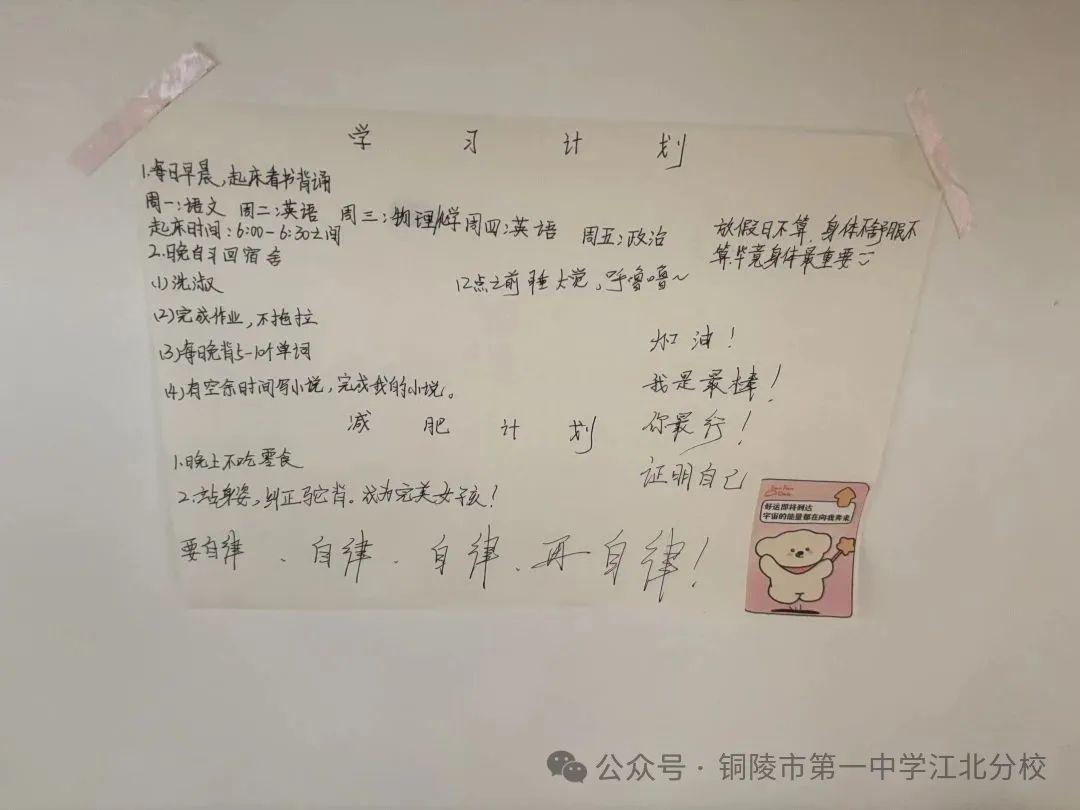 学习计划
1.每日早晨,起床看书背诵
周一:语文 周二:英语 周三:物理化学 周四:英语 周五:政治
起床时间:6:00-6:30之间
放假日不算,身体不舒服不
算.毕竟身体最重要
2.晚自习回宿舍
(1)洗漱
12点之前睡大觉,呼噜噜~
(2)完成作业,不拖拉
(3)每晚背5-10个单词
(4)有空余时间写小说,完成我的小说。
加油!
我是最棒!
你最行!
证明自己
减肥计划
1.晚上不吃零食
2.站身姿,纠正驼背。成为完美女孩!
要自律、自律、自律、再自律!
好运即将到达
宇宙的能量都在向我奔来
公众号·铜陵市第一中学江北分校